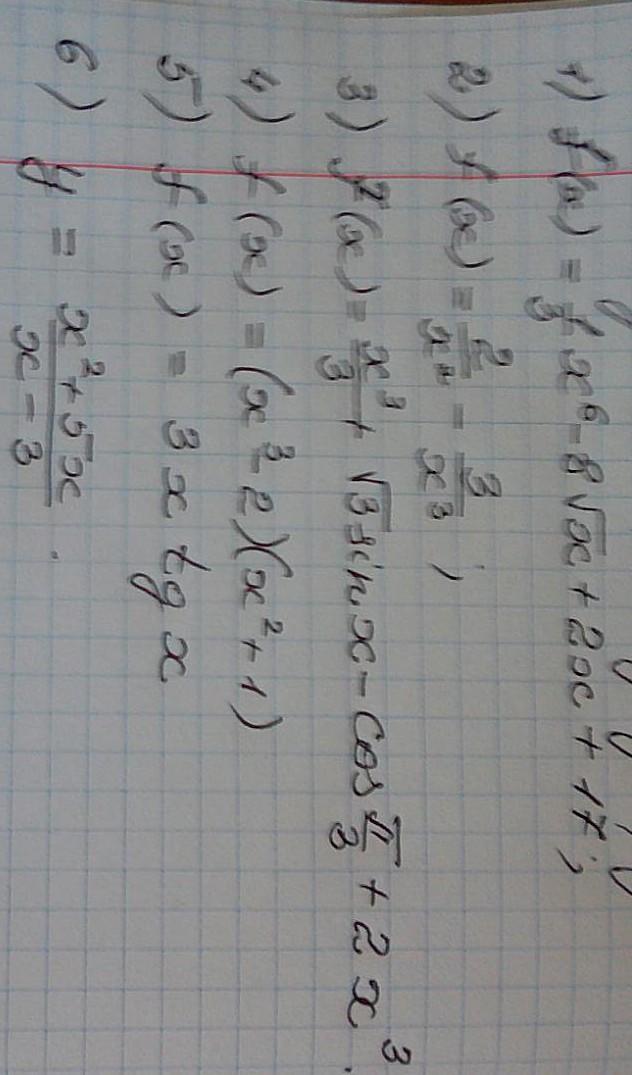 1) f(x) = 1/3 x⁶ - 8√x + 2x + 17;
2) f(x) = 2/x⁴ - 3/x³ ;
3) f(x) = x³/3 + √3 sin x - cos π/3 + 2x³.
4) f(x) = (x³ - 2)(x² + 1)
5) f(x) = 3x tg x
6) y = (x² + 5x)/(x - 3) .